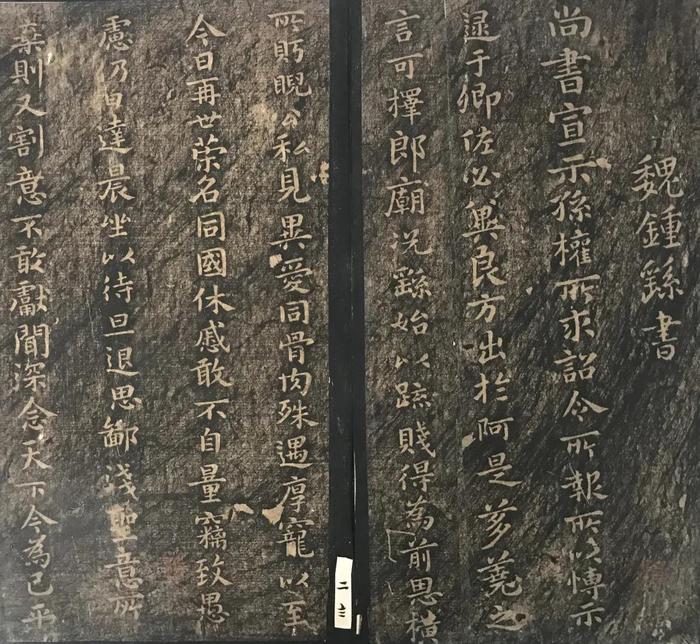 魏鍾繇書
尚書宣示孫權所求詔令所報所以博示
逮于卿佐必冀良方出於阿是芻蕘之
言可擇郎廟況繇始以疏賤得為前恩橫
所眄睨公私見異愛同骨肉殊遇厚寵以至
今日再世荣名同國休慼敢不自量竊致愚
慮仍日達晨坐以待旦退思鄙淺聖意所
棄則又割意不敢獻聞深念天下今為已平
二